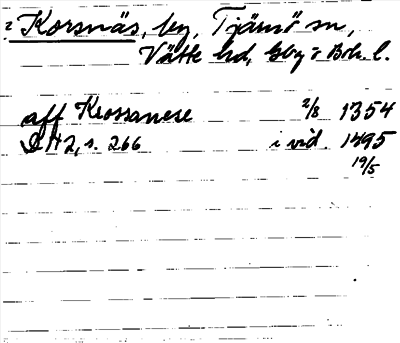 2 Korsnäs, by, Tjärnö sn,
Vätte hd, Gbg o Boh. l.
aff Krossanese 2/8 1354
DN 2, s. 266 i vid. 1495
19/5